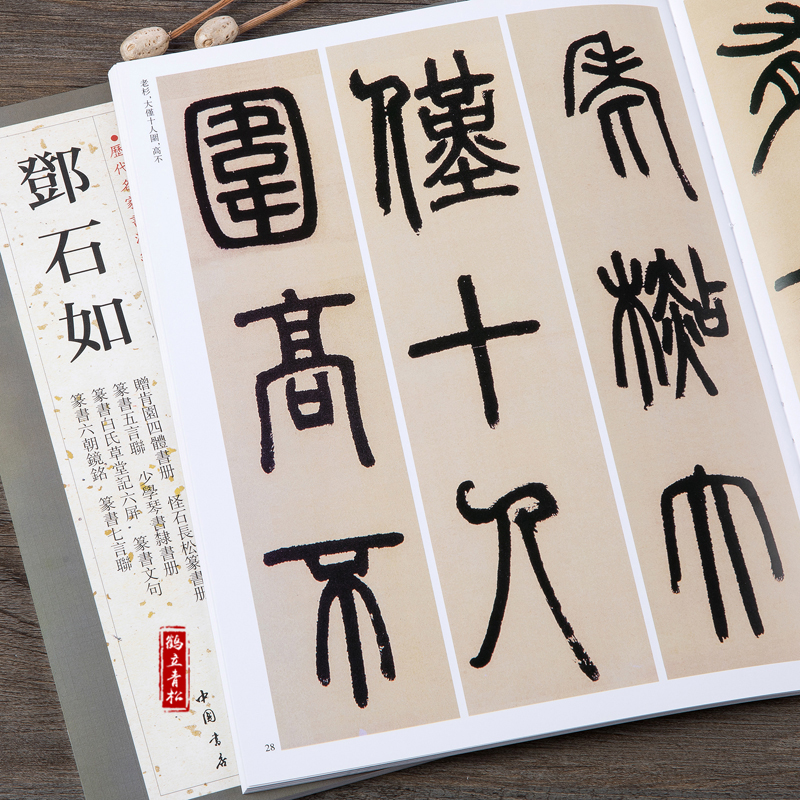 老杉，大僅十人圍，高不
老杉大
僅十人
圍高不
28
歷代名家
鄧石如
贈肯園四體書册 怪石長松篆書册
篆書五言聯 少學琴書隸書册
篆書白氏草堂記六屏 篆書文句
篆書六朝鏡銘 篆書七言聯
鶴立青松
中國書店